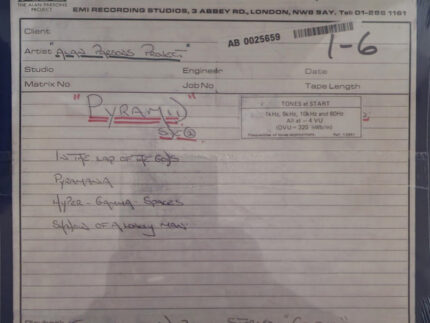 THE ALAN PARSONS
PROJECT
EMI RECORDING STUDIOS, 3 ABBEY RD., LONDON, NW8 9AY. Tel: 01-286 1161
Client
AB 0025659
1-6
Artist "ALAN PARSONS PROJECT"
Studio Engineer Date
Matrix No Job No Tape Length
"PYRAMID"
TONES at START
1kHz, 5kHz, 10kHz and 60Hz
All at - 4 VU
(OVU = 320 nWb/m)
Frequencies of tones approximate.
IN THE LAP OF THE GODS
PYRAMANIA
HYPER-GAMMA-SPACES
SHADOW OF A LONELY MAN